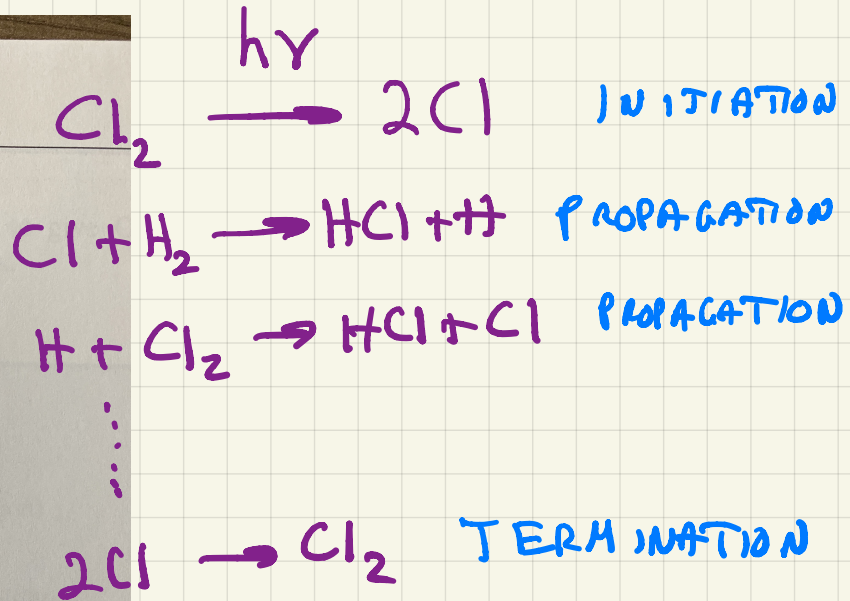 hν
Cl₂ → 2Cl INITIATION
Cl + H₂ → HCl + H PROPAGATION
H + Cl₂ → HCl + Cl PROPAGATION
⋮
2Cl → Cl₂ TERMINATION